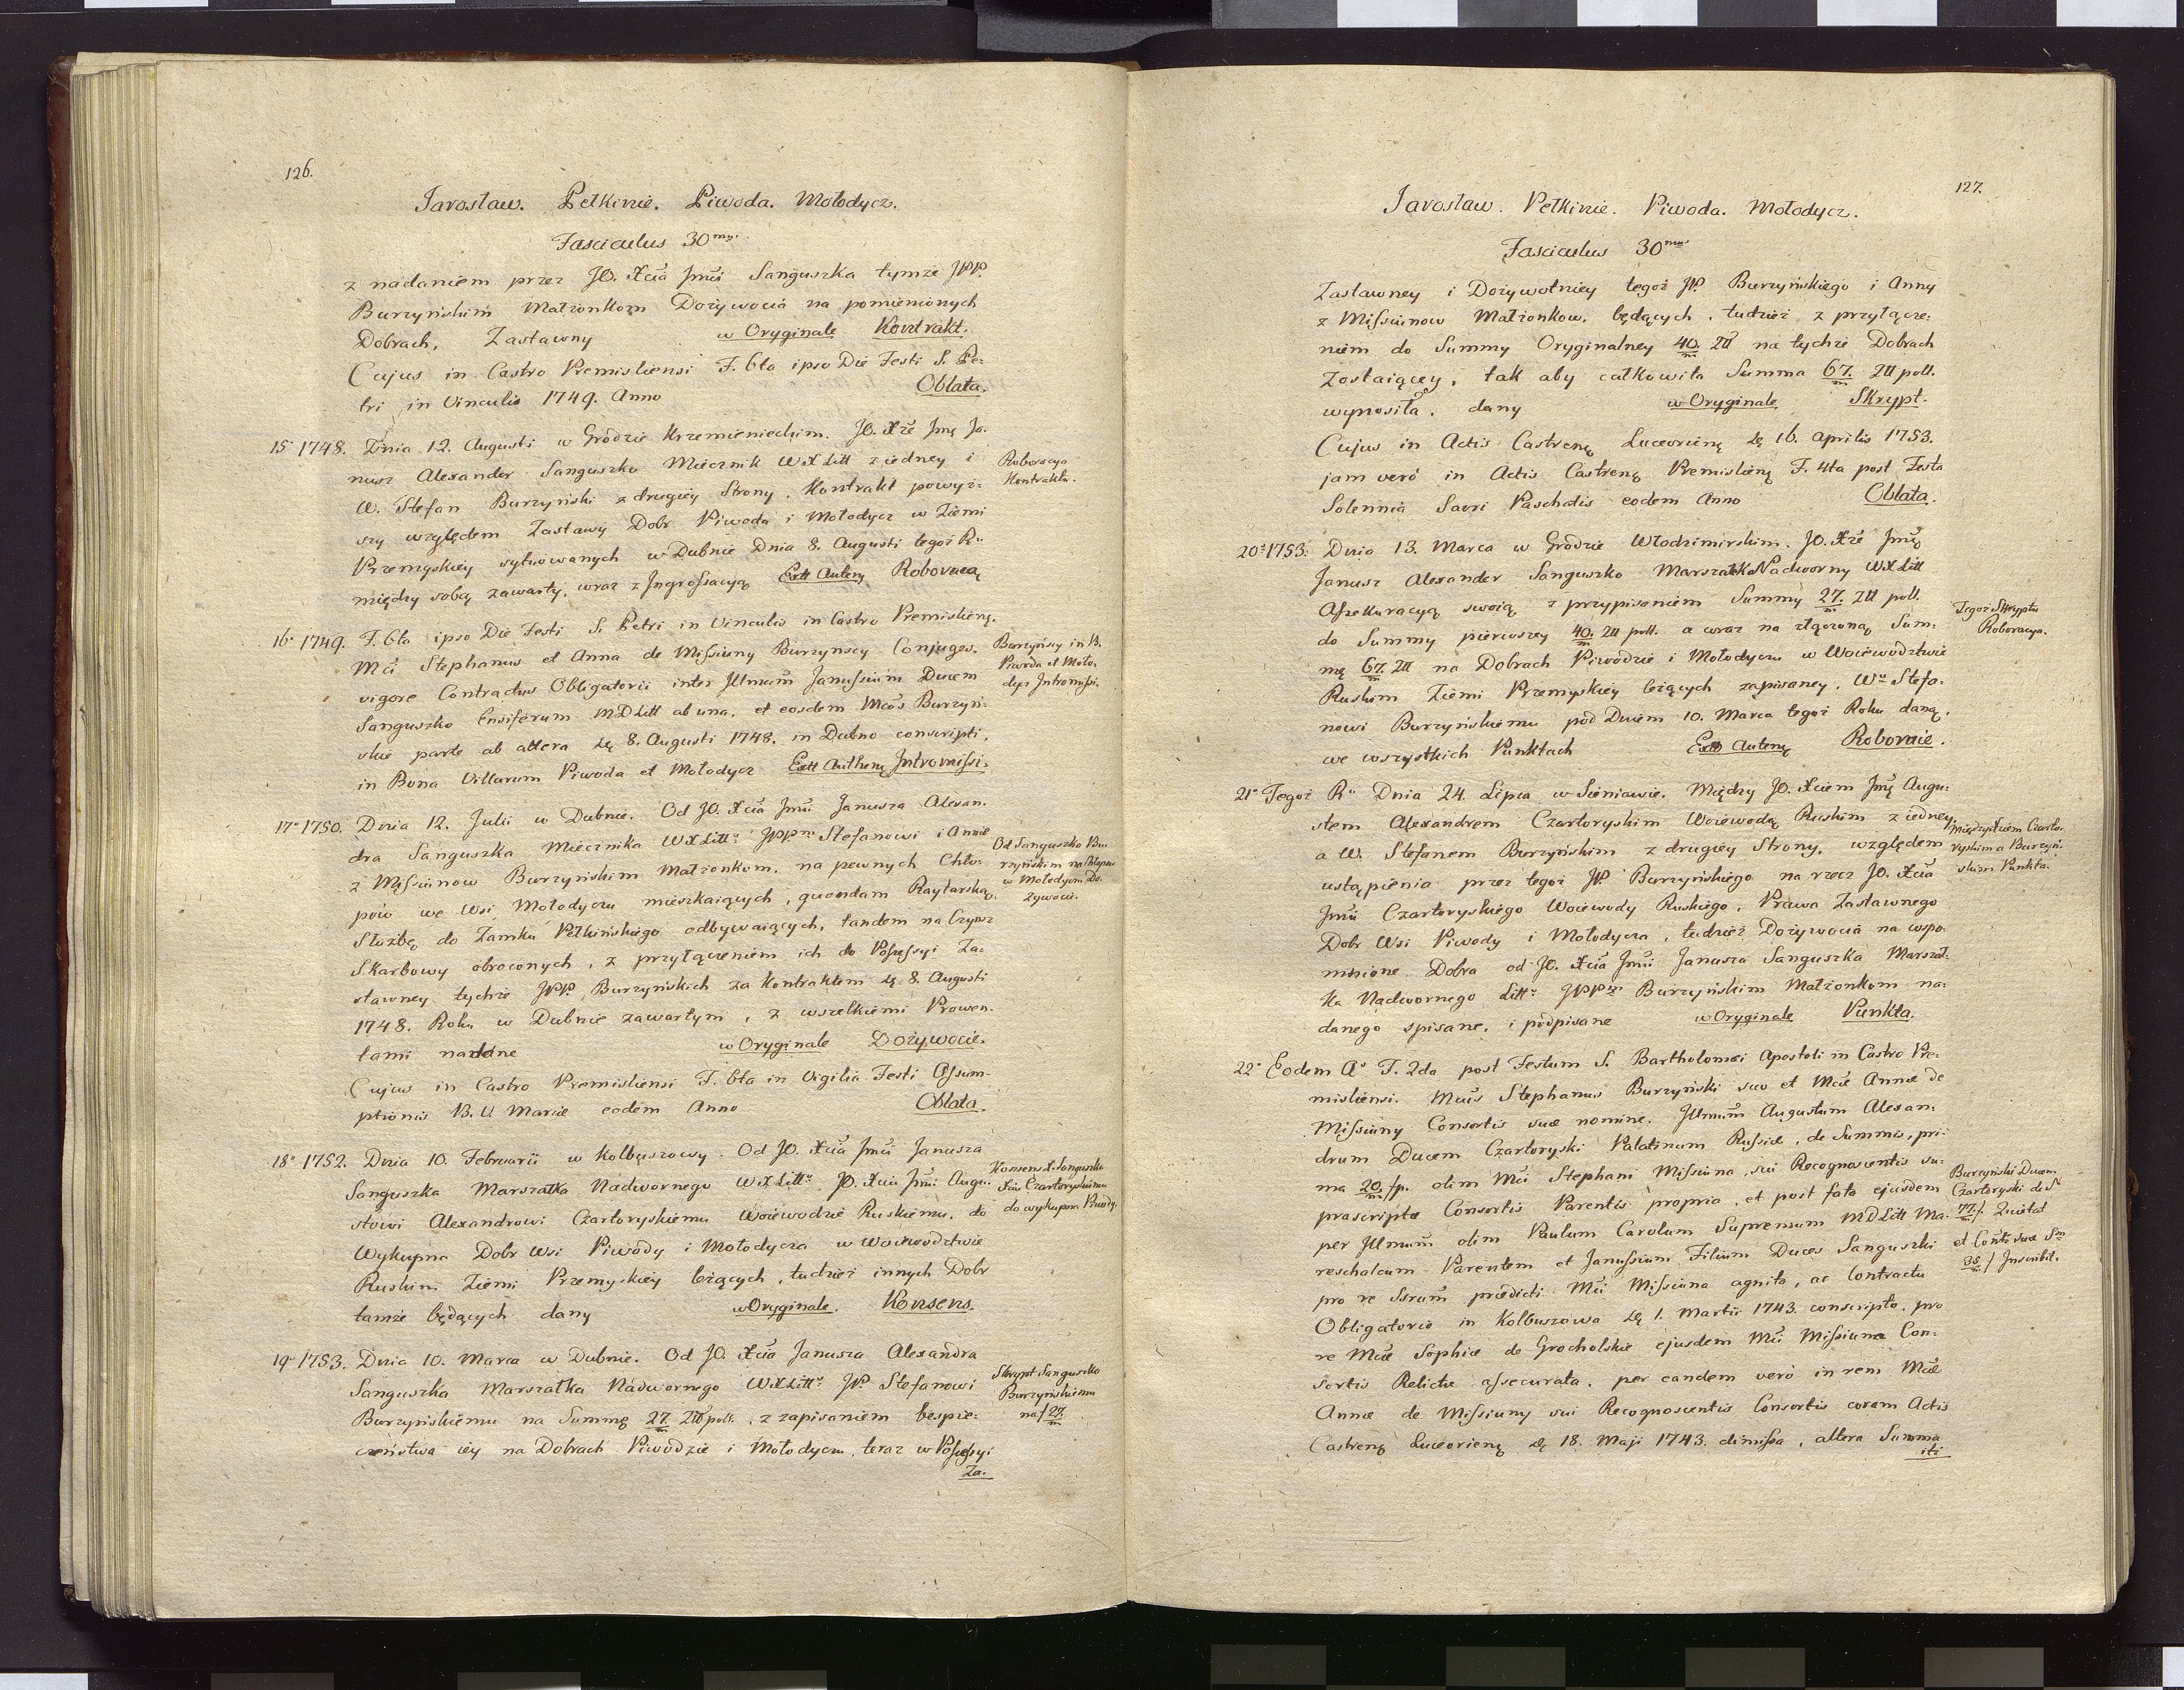 126.
Jarosław. Pełkinie. Piwoda. Mołodycz.
Fasciculus 30mus.
z nadaniem przez JO. Xcia Jmći Sanguszka tymże JPP.
Burzyńskim Małżonkom Dożywocia na pomienionych
Dobrach, Zastawny w Oryginale Kontrakt.
Cujus in Castro Premisliensi F. 6ta ipso Die Festi S. Pe-
tri in Vinculis 1749. Anno Oblata.
15º 1748. Dnia 12. Augusti w Grodzie Krzemienieckim. JO. Xże Jmć Ja-
nusz Alexander Sanguszko Miecznik WXLitt z iedney i
W. Stefan Burzyński z drugiey Strony. Kontrakt powyż-
szy względem Zastawy Dobr Piwoda i Mołodycz w Ziemi
Przemyskiey sytuowanych w Dubnie Dnia 8. Augusti tegoż Ru
między sobą zawarty, wraz z Ingrossacyą Extt Auten. Roborują
Roboracya
Kontraktu.
16º 1749. F. 6ta ipso Die Festi S. Petri in Vinculis in Castro Premislien.
Mci Stephanus et Anna de Missiuny Burzynscy Conjuges.
vigore Contractus Obligatorii inter Illmum Janussium Ducem
Sanguszko Ensiferum MDLitt ab una, et eosdem Mcos Burzyń-
skie parte ab altera de 8. Augusti 1748. in Dubno conscripti,
in Bona Villarum Piwoda et Mołodycz Extt Authen. Intromissi.
Burzyńscy in B.
Piwoda et Moło-
dycz Intromissi.
17º 1750. Dnia 12. Julii w Dubnie. Od JO. Xcia Jmći Janusza Alexan-
dra Sanguszka Miecznika WXLittº JPPm Stefanowi i Annie
z Missiunow Burzyńskim Małżonkom, na pewnych Chło-
pów we Wsi Mołodyczu mieszkaiących, quondam Raytarską
Służbę do Zamku Pełkińskiego odbywaiących, tandem na Czynsz
Skarbowy obroconych, z przyłączeniem ich do Possessyi Za-
stawney tychże JPP. Burzyńskich za Kontraktem de 8. Augusti
1748. Roku w Dubnie zawartym, z wszelkiemi Prowen-
tami nadane w Oryginale Dożywocie.
Cujus in Castro Premisliensi F. 6ta in Vigilia Festi Assum-
ptionis B. V. Mariæ eodem Anno Oblata.
Od Sanguszko Bu-
rzyńskim na Chłopów
w Mołodyczu Do-
żywocie.
18º 1752. Dnia 10. Februarii w Kolbuszowy. Od JO. Xcia Jmći Janusza
Sanguszka Marszałka Nadwornego WXLittº JO. Xciu Jmći Augu-
stowi Alexandrowi Czartoryskiemu Woiewodzie Ruskiemu, do
Wykupna Dobr Wsi Piwody i Mołodycza w Woiewodztwie
Ruskim Ziemi Przemyskiey leżących, tudzież innych Dobr
tamże będących dany w Oryginale. Konsens.
Konsens X. Sanguszka
Xciu Czartoryskiemu
do wykupna Piwody.
19º 1753. Dnia 10. Marca w Dubnie. Od JO. Xcia Janusza Alexandra
Sanguszka Marszałka Nadwornego WXLittº JP. Stefanowi
Burzyńskiemu na Summę 27/m Zł poll. z zapisaniem bespie-
czeństwa iey na Dobrach Piwodzie i Mołodyczu, teraz w Possessyi
Za-
Skrypt Sanguszka
Burzyńskiemu
na f 27/m
127.
Jarosław. Pełkinie. Piwoda. Mołodycz.
Fasciculus 30mus
Zastawney i Dożywotniey tegoż JP. Burzyńskiego i Anny
z Missiunow Małżonkow, będących, tudzież z przyłącze-
niem do Summy Oryginalney 40/m Zł na tychże Dobrach
zostaiącey, tak aby całkowita Summa 67/m Zł poll.
wynosiła, dany w Oryginale Skrypt.
Cujus in Actis Castren. Luceorien. de 16. Aprilis 1753.
jam vero in Actis Castren. Premislien. F. 4ta post Festa
Solennia Sacri Paschatis eodem Anno Oblata.
20º 1753. Dnia 13. Marca w Grodzie Włodzimirskim. JO. Xże Jmć
Janusz Alexander Sanguszko Marszałek Nadworny WXLitt
Assekuracyą swoią z przypisaniem Summy 27/m Zł poll.
do Summy pierwszey 40/m Zł poll. a wraz na złączoną Sum-
mę 67/m Zł na Dobrach Piwodzie i Mołodyczu w Woiewodztwie
Ruskim Ziemi Przemyskiey leżących zapisaney, Wu Stefa-
nowi Burzyńskiemu pod Dniem 10. Marca tegoż Roku daną,
we wszystkich Punktach Extt Auten. Roboruie.
Tegoż Skryptu
Roboracya.
21º Tegoż Ru Dnia 24. Lipca w Sieniawie. Między JO. Xciem Jmć Augu-
stem Alexandrem Czartoryskim Woiewodą Ruskim z iedney,
a W. Stefanem Burzyńskim z drugiey Strony, względem
ustąpienia przez tegoż JP. Burzyńskiego na rzecz JO. Xcia
Jmći Czartoryskiego Woiewody Ruskiego, Prawa Zastawnego
Dobr Wsi Piwody i Mołodycza, tudzież Dożywocia na wspo-
mnione Dobra od JO. Xcia Jmći Janusza Sanguszka Marszał-
ka Nadwornego Littº JPPm Burzyńskim Małżonkom na-
danego spisane, i podpisane w Oryginale Punkta.
Między Xciem Czarto-
ryskim a Burzyń-
skim Punkta.
22º Eodem Aº F. 2da post Festum S. Bartholomæi Apostoli in Castro Pre-
misliensi. Mcus Stephanus Burzyński suo et Mcæ Annæ de
Missiuny Consortis suæ nomine, Illmum Augustum Alexan-
drum Ducem Czartoryski Palatinum Russiæ, de Summis, pri-
ma 20/m fp. olim Mci Stephani Missiuna sui Recognoscentis su-
prascriptæ Consortis Parentis propria, et post fata ejusdem
per Illmum olim Paulum Carolum Supremum MDLitt Ma-
reschalcum Parentem et Janussium Filium Duces Sanguszki
pro re Ssrum prædicti Mci Missiuna agnita, ac Contractu
Obligatorio in Kolbuszowa de 1. Martii 1743. conscripto, pro
re Mcæ Sophiæ de Grocholskie ejusdem Mci Missiuna Con-
sortis Relictæ assecurata, per eandem vero in rem Mcæ
Annæ de Missiuny sui Recognoscentis Consortis coram Actis
Castren. Luceorien. de 18. Maji 1743. dimissa, altera Summa
iti
Burzyński Ducem
Czartoryski de Sa
77/m f. Quietat
et Conti suæ Sm
35/m f Inscribit.